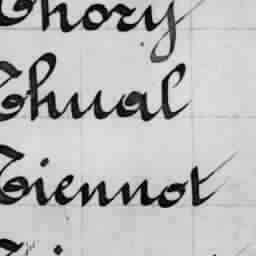 Thory
Thual
Tiennot